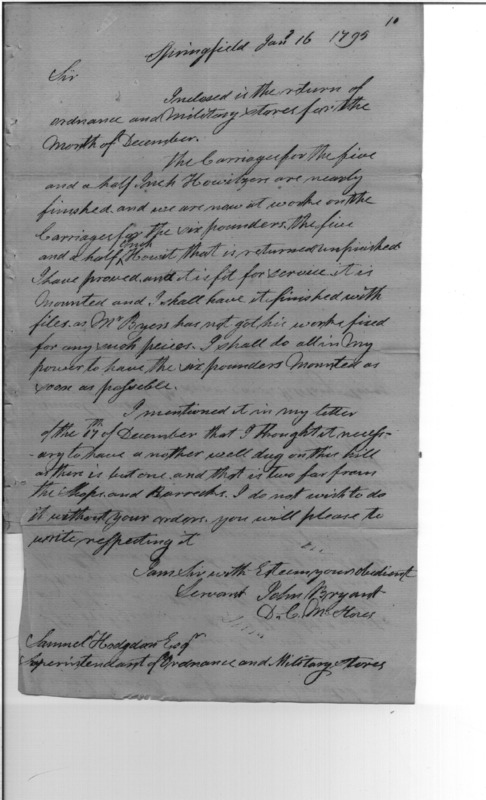 10
Springfield Jany 16 1795
Sir
Inclosed is the return of
ordnance and Military Stores for the
Month of December.
The Carriages for the five
and a half Inch Howitzers are nearly
finished. and we are now at worke on the
Carriages for the six pounders. the five
and a half Inch Howit. that is returned unfinished
I have proved. and it is fit for service. it is
Mounted and I shall have it finished with
files. as Mr Byers has not got his works fixed
for any such peices. I shall do all in My
power to have the six pounders Mounted as
soon as possible.
I mentioned it in my letter
of the 17th of December that I thought it necess-
ary to have a nother well dug on this hill
as there is but one. and that is two far from
the Shops. and Barrecks. I do not wish to do
it without your orders. you will please to
write respecting it
I am Sir with Esteem your obedient
Servant John Bryant
D. C. M. Stores
Samuel Hodgdon Esqr
Superintendant of Ordnance and Military Stores